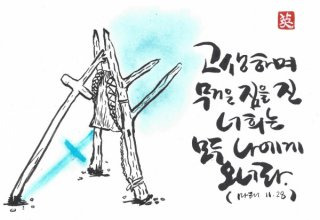 고생하며
무거운 짐을 진
너희는
모두 나에게
오너라.
11.28)